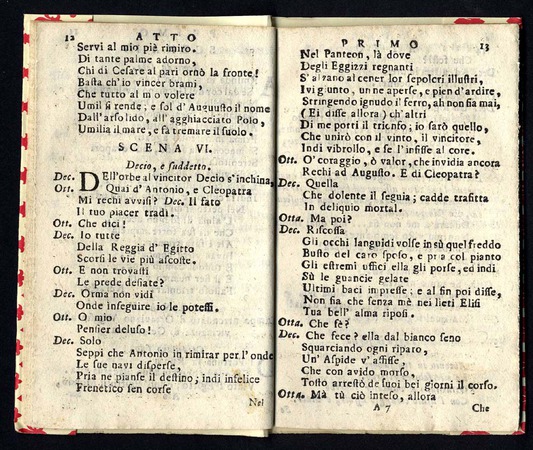 12 ATTO
Servi al mio piè rimiro.
Di tante palme adorno,
Chi di Cesare al pari ornò la fronte!
Basta ch'io vincer brami,
Che tutto al mio volere
Umil si rende; e sol d' Augusto il nome
Dall' arso lido, all' agghiacciato Polo,
Umilia il mare, e fa tremare il suolo.
SCENA VI.
Decio, e suddetto.
Dec. DEll'orbe al vincitor Decio s'inchina,
Ott. Quai d' Antonio, e Cleopatra
Mi rechi avvisi? Dec. Il fato
Il tuo piacer tradì.
Ott. Che dici!
Dec. Io tutte
Della Reggia d' Egitto
Scorsi le vie più ascoste.
Ott. E non trovasti
Le prede desiate?
Dec. Orma non vidi
Onde inseguire io le potessi.
Ott. O mio
Pensier deluso!
Dec. Solo
Seppi che Antonio in rimirar per l' onde
Le sue navi disperse,
Pria ne pianse il destino; indi infelice
Frenetico sen corse
Nel
PRIMO 13
Nel Panteon, là dove
Degli Eggizzi regnanti
S' alzano al cener lor sepolcri illustri,
Ivi giunto, un ne aperse, e pien d'ardire,
Stringendo ignudo il ferro, ah non sia mai,
(Ei disse allora) ch' altri
Di me porti il trionfo; io sarò quello,
Che unirò con il vinto, il vincitore,
Indi vibrollo, e se l' infisse al core.
Ott. O' coraggio, ò valor, che invidia ancora
Rechi ad Augusto. E di Cleopatra?
Dec. Quella
Che dolente il seguia; cadde trafitta
In deliquio mortal.
Otta. Ma poi?
Dec. Riscossa
Gli occhi languidi volse in sù quel freddo
Busto del caro sposo, e pria col pianto
Gli estremi uffici ella gli porse, ed indi
Sù le guancie gelate
Ultimi baci impresse; e al fin poi disse,
Non fia che senza mè ne i lieti Elisi
Tua bell' alma riposi.
Otta. Che fè?
Dec. Che fece? ella dal bianco seno
Squarciando ogni riparo,
Un' Aspide v' affisse,
Che con avido morso,
Tosto arrestò de suoi bei giorni il corso.
Otta. Mà tù ciò inteso, allora
A 7 Che